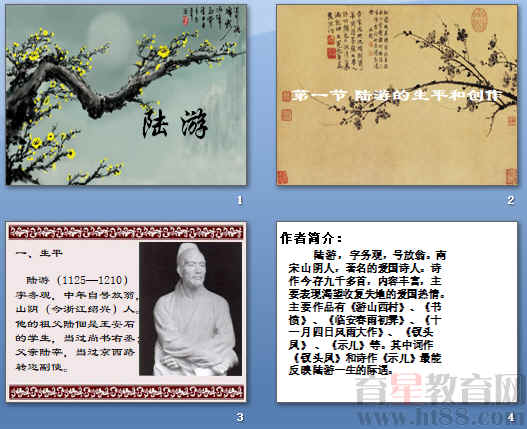 陆 游
1
第一节 陆游的生平和创作
2
一、生平
陆游（1125—1210）
字务观，中年自号放翁，
山阴（今浙江绍兴）人。
他的祖父陆佃是王安石
的学生，当过尚书右丞；
父亲陆宰，当过京西路
转运副使。
3
作者简介：
陆游，字务观，号放翁。南
宋山阴人，著名的爱国诗人。诗
作今存九千多首，内容丰富，主
要表现渴望收复失地的爱国热情。
主要作品有《游山西村》、《书
愤》、《临安春雨初霁》、《十
一月四日风雨大作》、《钗头
凤》、《示儿》等。其中词作
《钗头凤》和诗作《示儿》最能
反映陆游一生的际遇。
4
育星教育网
www.ht88.com